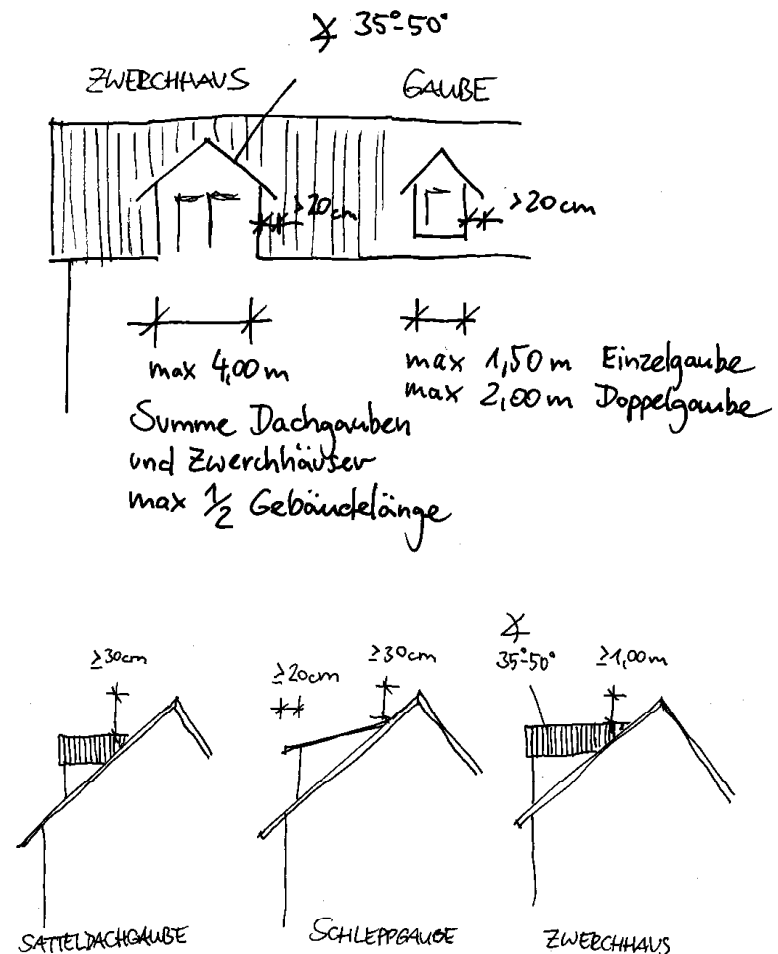 ∡ 35°-50°
ZWERCHHAUS
GAUBE
>20cm
>20cm
max 4,00 m
max 1,50 m Einzelgaube
max 2,00 m Doppelgaube
Summe Dachgauben
und Zwerchhäuser
max 1/2 Gebäudelänge
≥30cm
≥20cm
≥30cm
∡
35°-50°
≥1,00m
SATTELDACHGAUBE
SCHLEPPGAUBE
ZWERCHHAUS